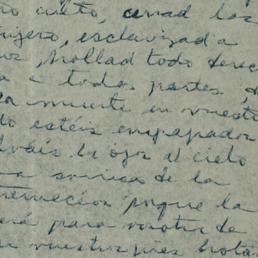 ro culto, cread los
njero, esclavizad a
os, hollad todo derec
a a todas partes, d
a muerte en vuestr
do estéis empapados
lváis los ojos al cielo
a sonrisa de la
tremeceos porque la
erá para vosotros de
e vuestros pies brota